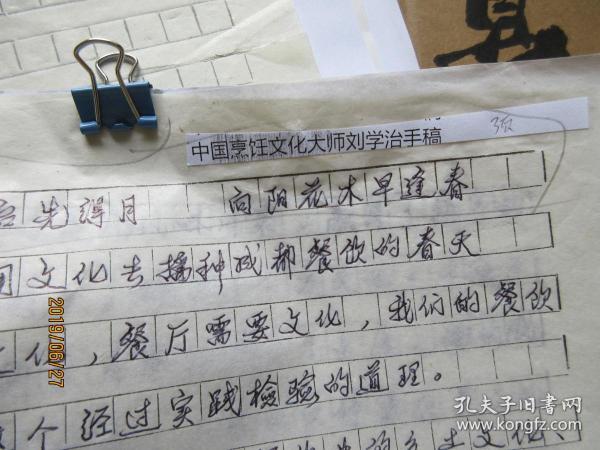 3页
中国烹饪文化大师刘学治手稿
台先得月 向阳花木早逢春
用文化去播种成都餐饮的春天
文化，餐厅需要文化，我们的餐饮
个经过实践检验的道理。
的乡土文化、
2019/06/27
孔夫子旧书网
www.kongfz.com